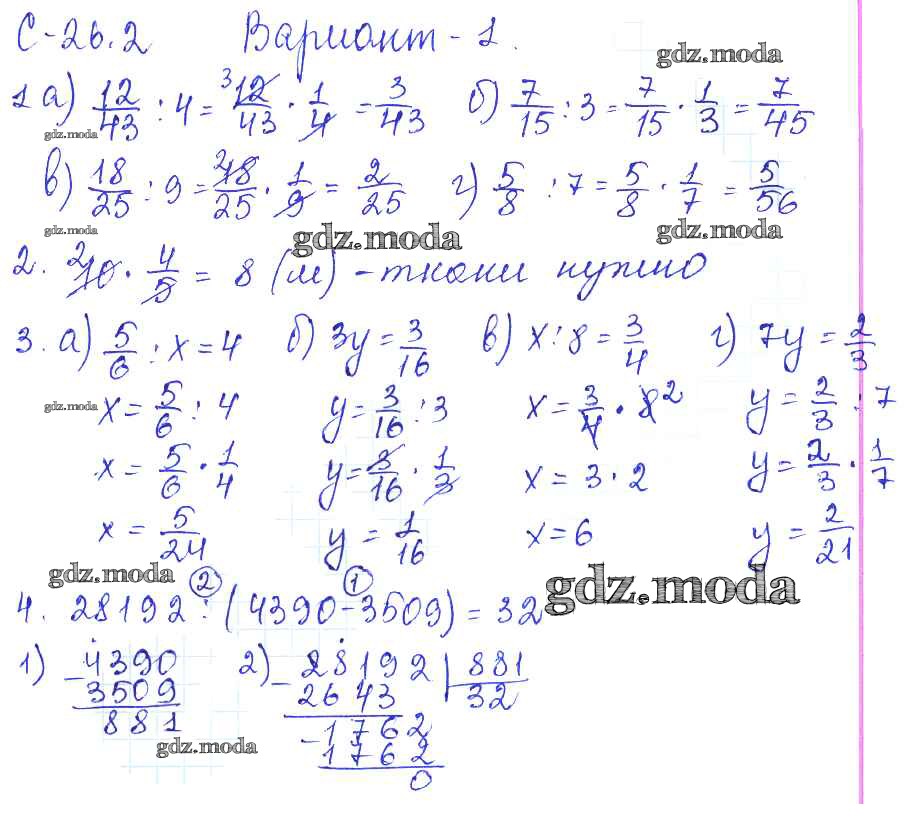 С-26.2 Вариант-1.
gdz.moda
1 а) 12/43 : 4 = 12/43 · 1/4 = 3/43 б) 7/15 : 3 = 7/15 · 1/3 = 7/45
gdz.moda
в) 18/25 : 9 = 18/25 · 1/9 = 2/25 г) 5/8 : 7 = 5/8 · 1/7 = 5/56
gdz.moda gdz.moda gdz.moda
2. 10 · 4/5 = 8 (м) - ткани нужно
3. а) 5/6 : x = 4 б) 3y = 3/16 в) x : 8 = 3/4 г) 7y = 2/3
gdz.moda x = 5/6 : 4 y = 3/16 : 3 x = 3/4 · 8 2 y = 2/3 : 7
x = 5/6 · 1/4 y = 3/16 · 1/3 x = 3 · 2 y = 2/3 · 1/7
x = 5/24 y = 1/16 x = 6 y = 2/21
gdz.moda 2 1 gdz.moda
4. 28192 : (4390 - 3509) = 32
1) - 4390 2) - 28192 | 881
3509 2643 32
881 - 1762
gdz.moda 1762
0